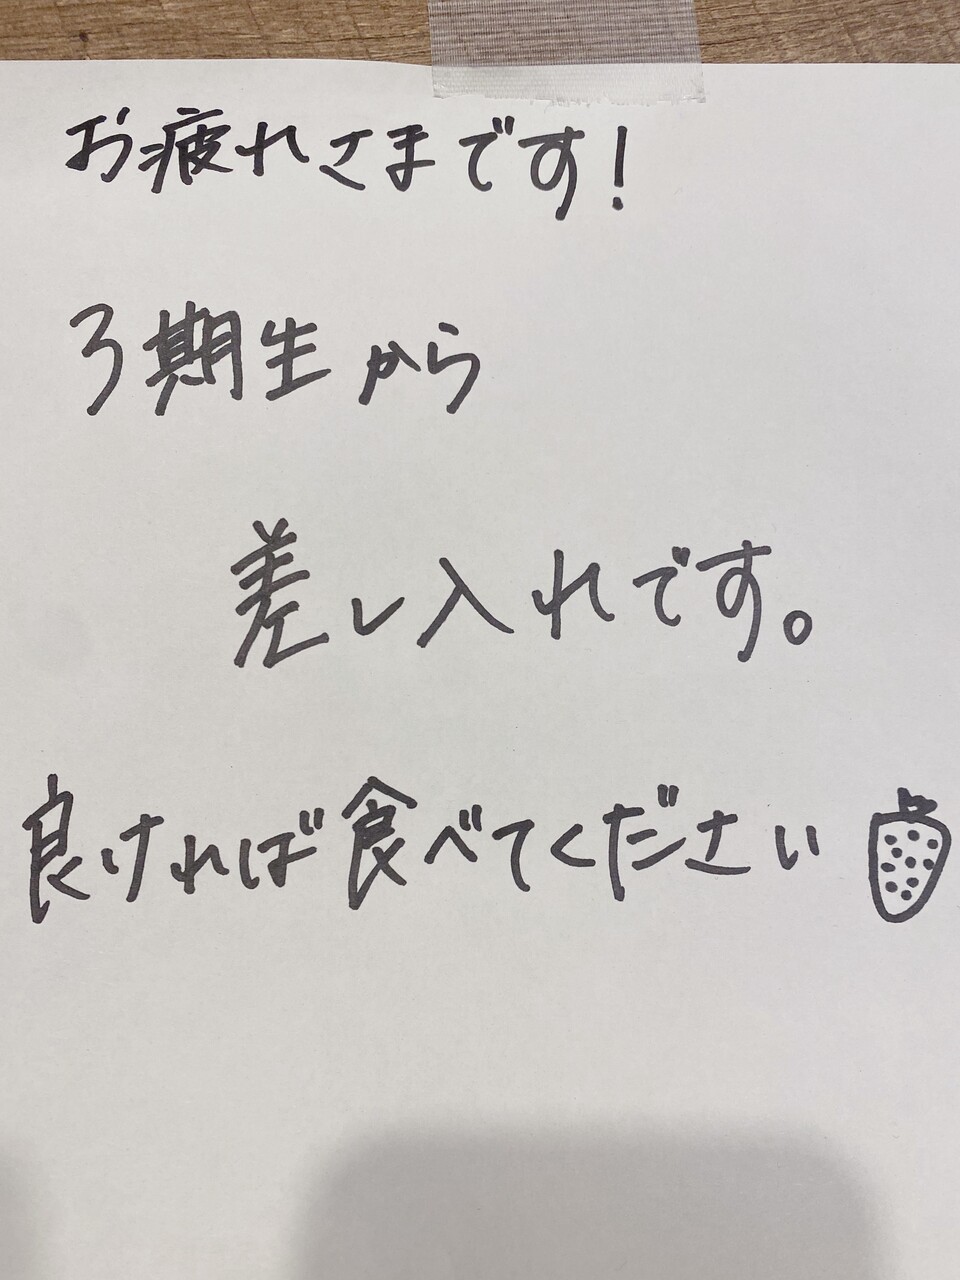 お疲れさまです!
3期生から
差し入れです。
良ければ食べてください